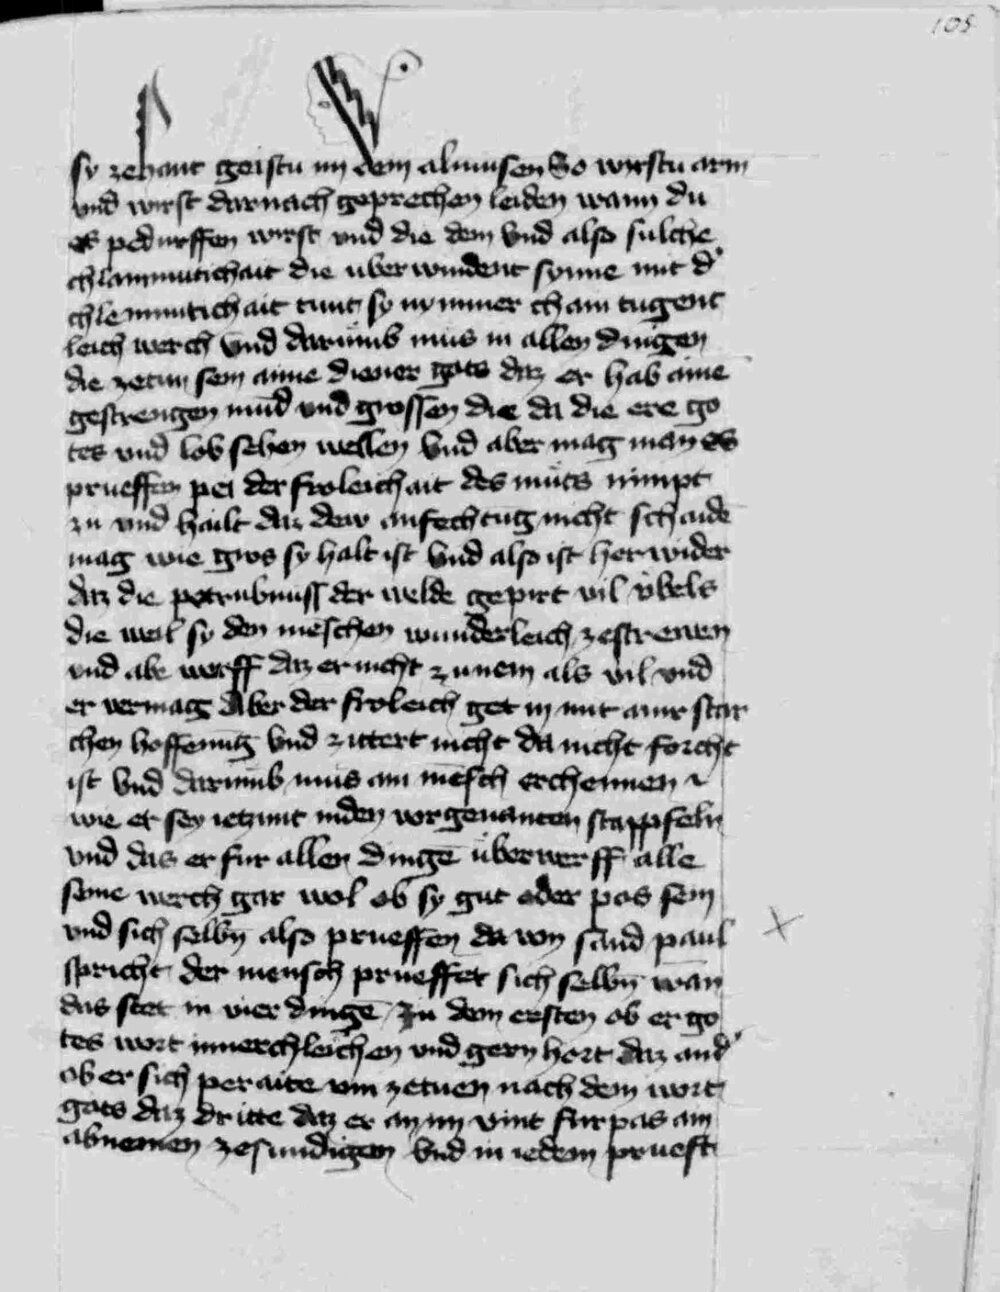 105
sy zehant geistu im dem almusen So wirstu arm
vnd wirst darnach geprechen leiden wann du
es pedurffen wirst vnd die dem Vnd also sulche
chlainmutichait die uberwindent synne mit d'
chlemmutichait tunt sy nymmer chain tugent
leich werch Vnd darumb mus in allen dingen
die zetun sein aime diener gots daz er hab aine
gestrengen mud vnd grossen die da die ere go
tes vnd lob sehen wellen Vnd aber mag man es
prueffen pei der froleichait des muts nimpt
zu vnd hailt daz dew anfechtug nicht schaide
mag wie gros sy halt ist Vnd also ist herwider
daz die petrubnuss der welde gepirt vil vbels
die weil sy den meschen wunderleich zestrewen
vnd abe werff daz er nicht zunem als vil vnd
er vermag Aber der froleich get in mit ainr star
chen hoffenug Vnd zittert nicht da nicht forcht
ist Vnd darumb mus ain mesch erchennen
wie er sey ietzunt inden vorgenanten stappfeln
vnd das er fur allen dinge uberwerff alle
seine werch gar wol ob sy gut oder pos sein
vnd sich selbn also prueffen da von sand paul
spricht der mensch prueffet sich selbn wan
das stet in vier dinge Zu dem ersten ob er go
tes wort innerchleichen vnd gern hort daz and'
ob er sich peraite vm zetuen nach dem wort
gots daz dritte daz er an im vint furpas ain
abnemen zesundigen Vnd in iedem prueft